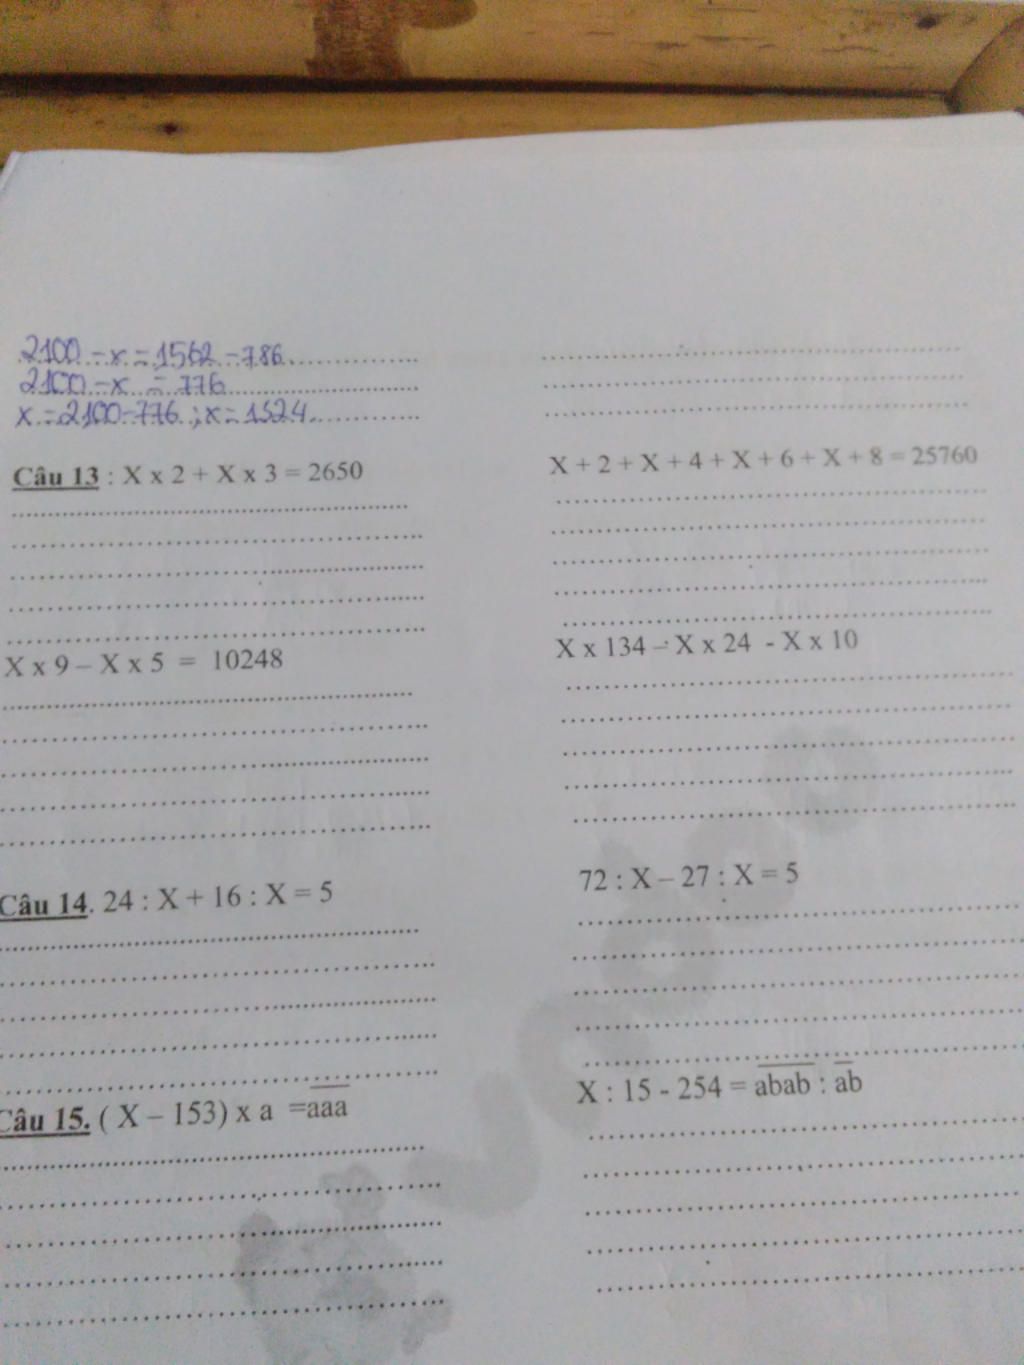 2100 - x = 1562 - 786
2100 - x = 776
x = 2100 - 776 ; x = 1324
Câu 13 : X x 2 + X x 3 = 2650
X + 2 + X + 4 + X + 6 + X + 8 = 25760
X x 9 – X x 5 = 10248
X x 134 – X x 24 - X x 10
Câu 14. 24 : X + 16 : X = 5
72 : X – 27 : X = 5
Câu 15. ( X – 153) x a = a̅a̅a̅
X : 15 - 254 = a̅b̅a̅b̅ : a̅b̅